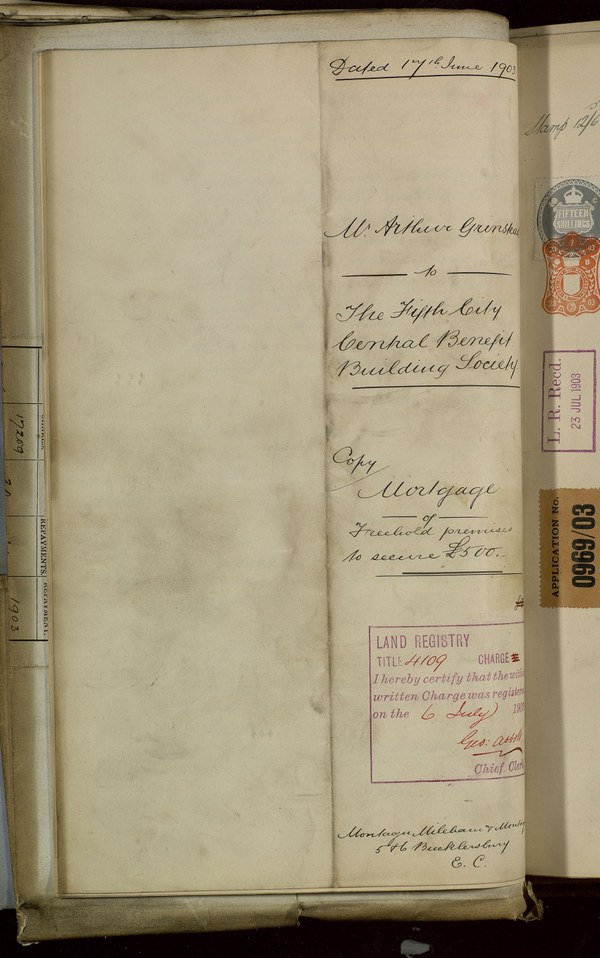 Dated 17th June 1903
Mr Arthur
to
The Fifth City
Central Benefit
Building Society
Copy
Mortgage
of
Freehold premises
to secure £500.
LAND REGISTRY
TITLE 4109 CHARGE
I hereby certify that the
written Charge was
on the 6 July
Geo:
Chief
Montagu Mileham &
5 & 6 Bucklersbury
E. C.
Stamp 12/6
FIFTEEN
SHILLINGS
L. R. Recd.
23 JUL 1903
APPLICATION No.
0969/03
17209
REPAYMENTS
1903